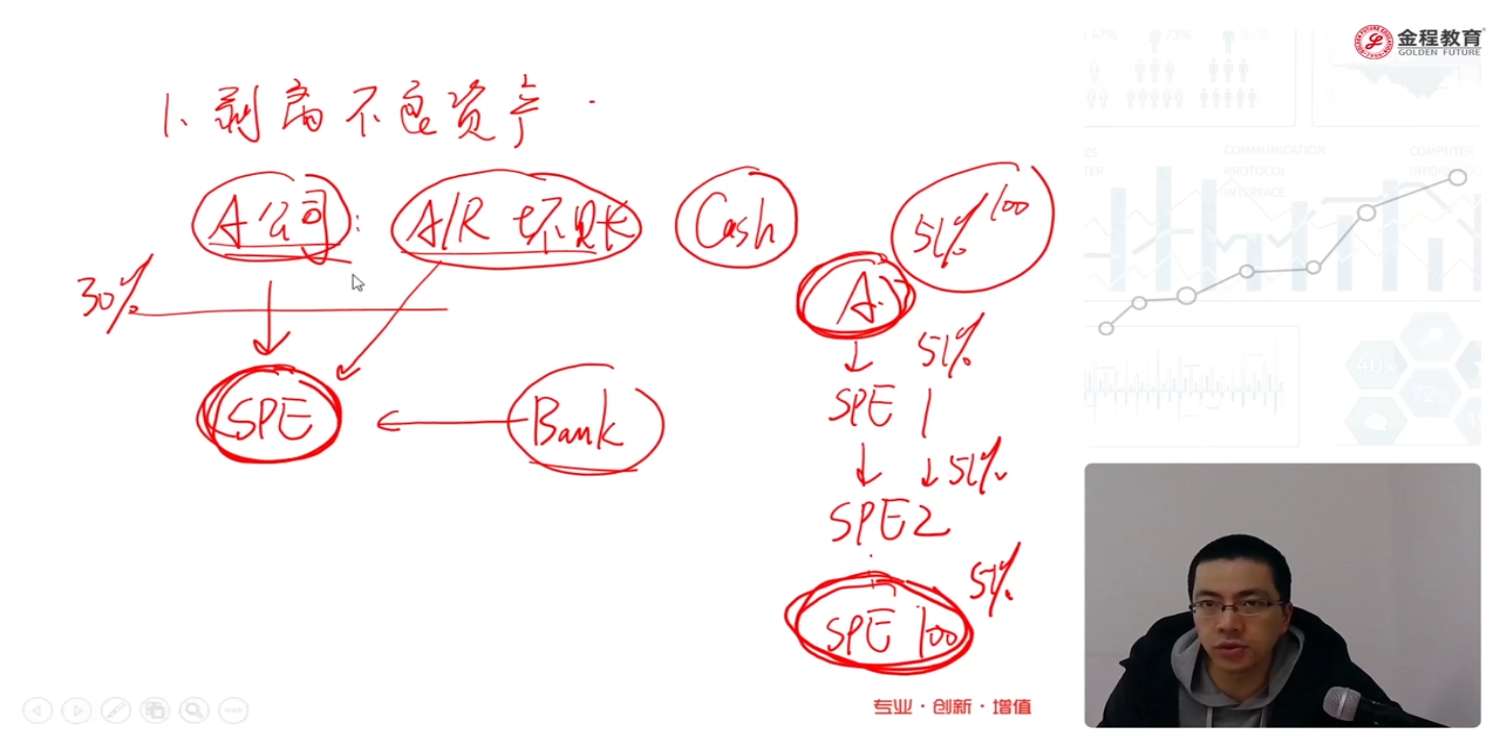 金程教育
GOLDEN FUTURE
1、剥离不良资产
A公司: A/R 坏账 Cash 51%^100
30%
A
51%
SPE 1
SPE Bank
51%
SPE2
51%
SPE 100
COMMUNICATION
PROTOCOL
INTERFACE
专业·创新·增值